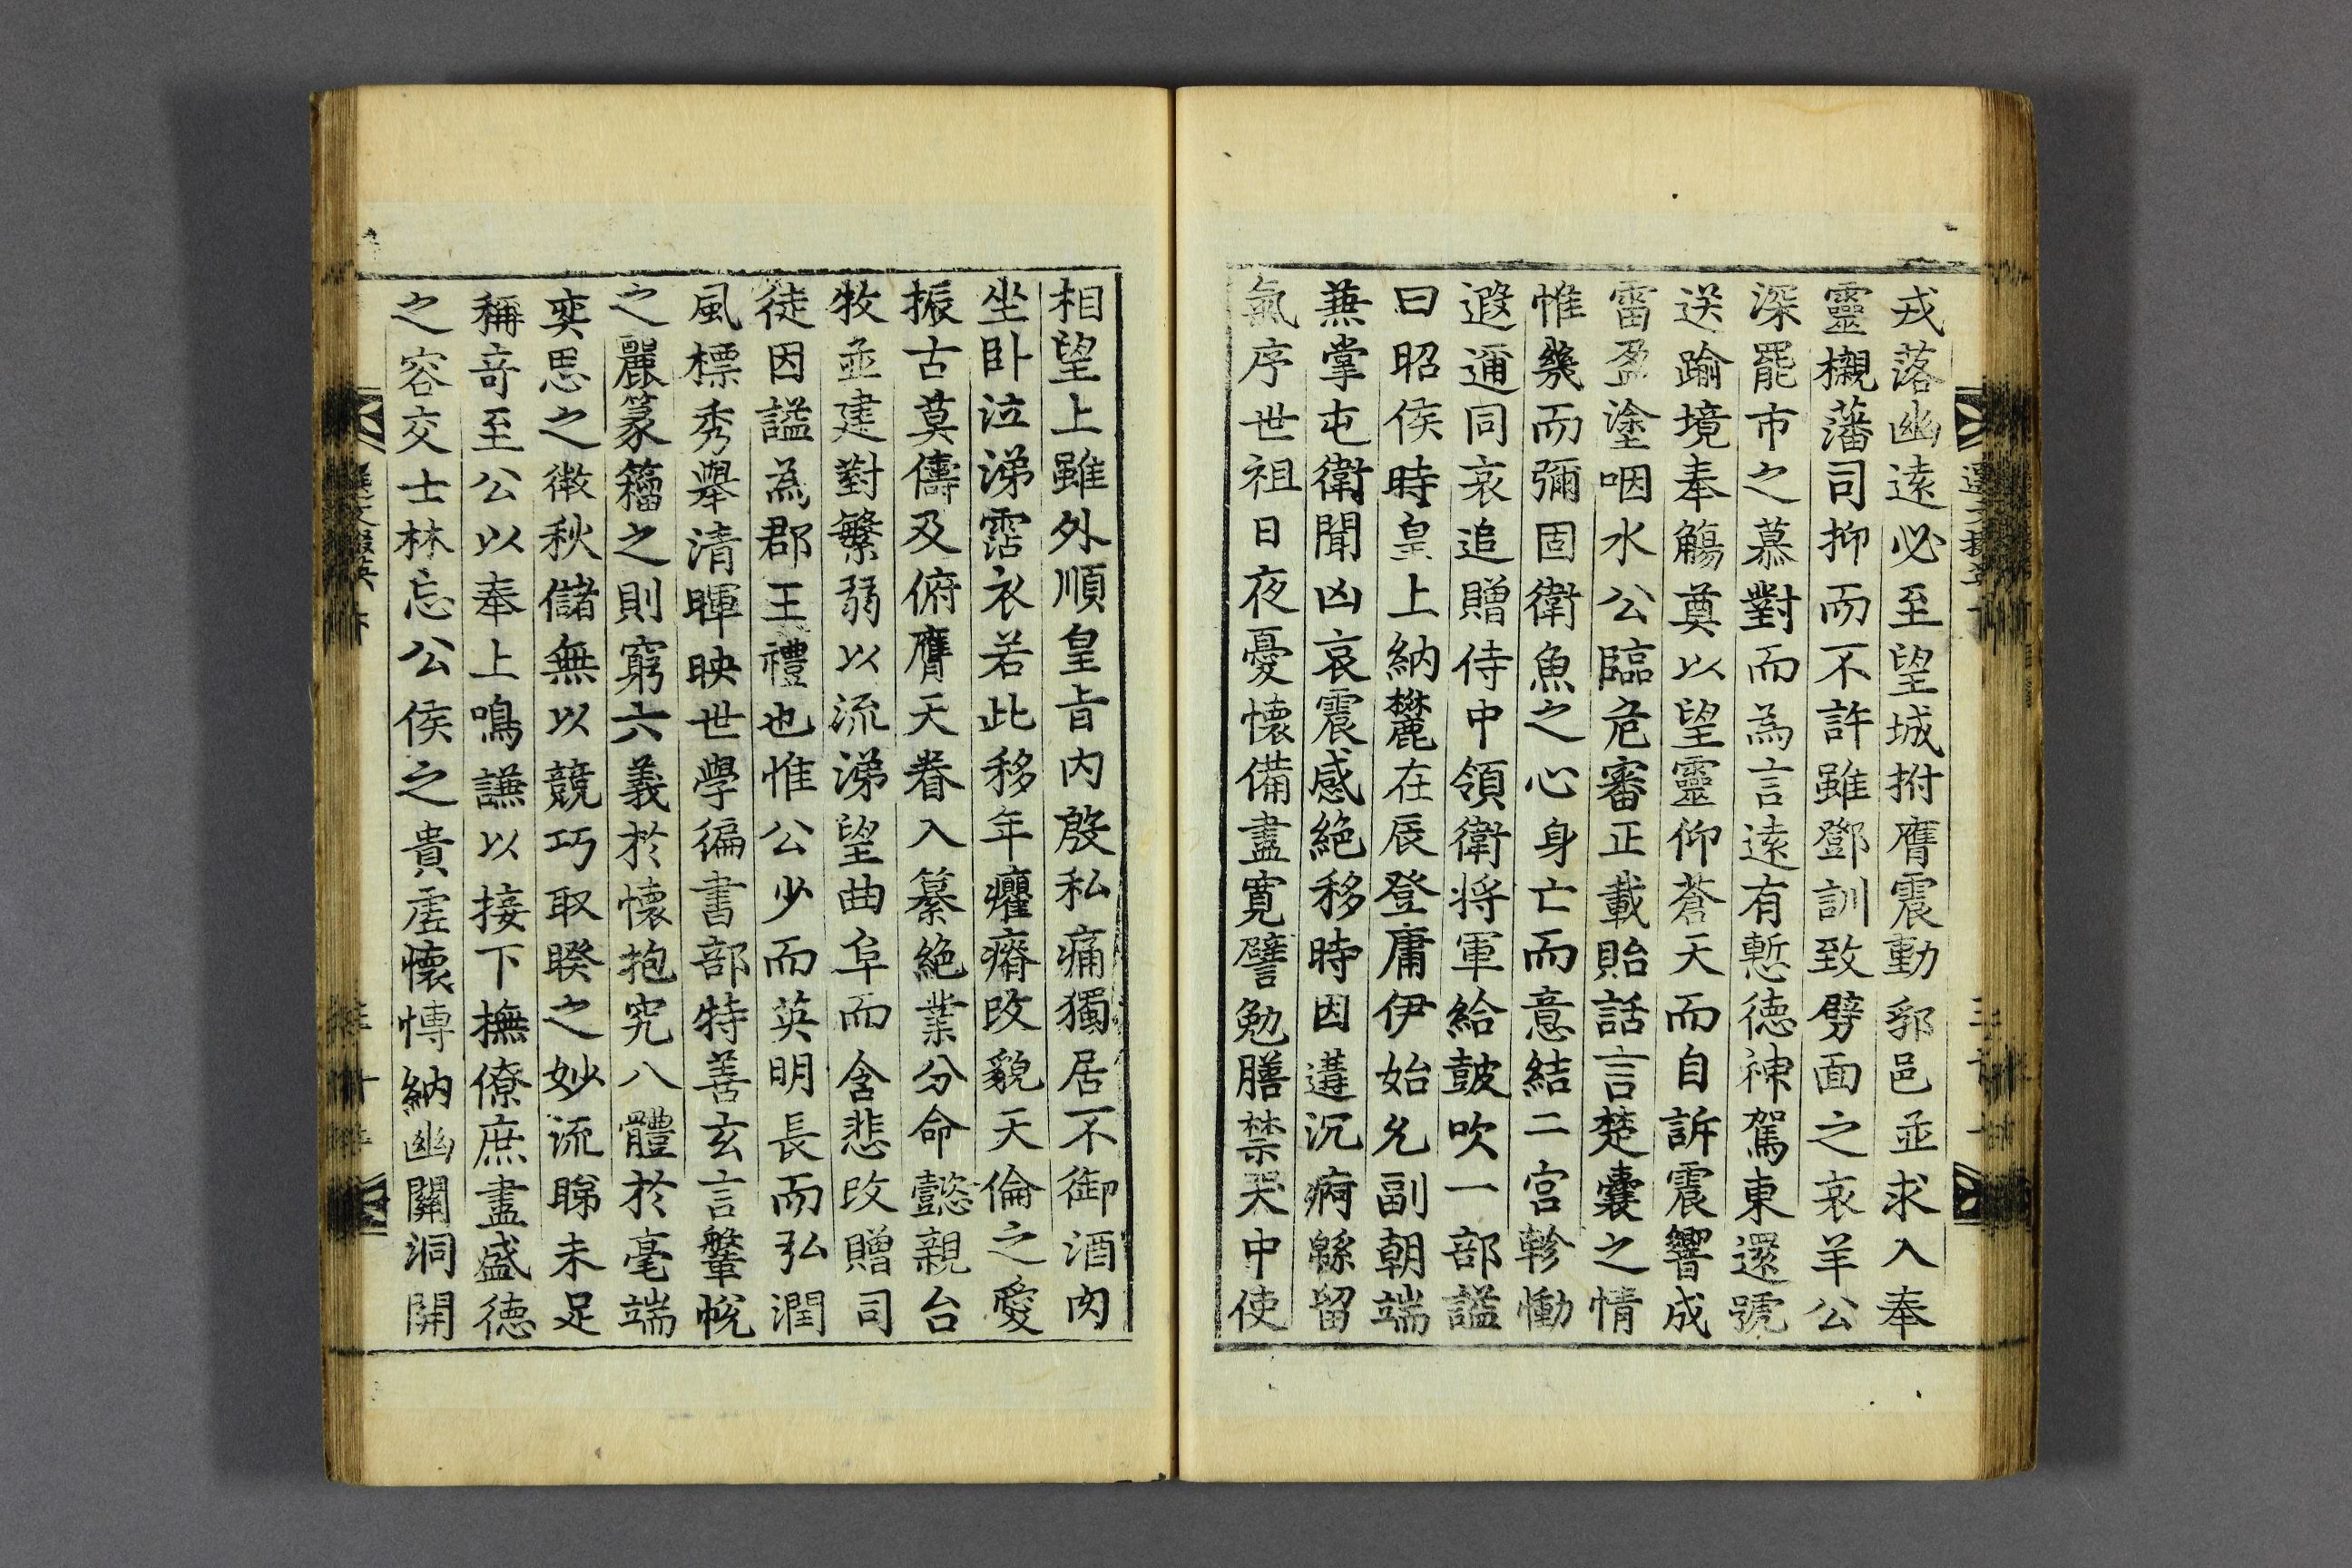 戎落幽遠必至望城拊膺震動郛邑並求入奉
靈櫬藩司抑而不許雖鄧訓致劈面之哀羊公
深罷市之慕對而為言遠有慙德神駕東還號
送踰境奉觴奠以望靈仰蒼天而自訴震響成
雷盈塗咽水公臨危審正載貽話言楚囊之情
惟幾而彌固衛魚之心身亡而意結二宮軫慟
遐邇同哀追贈侍中領衛將軍給鼓吹一部謚
曰昭侯時皇上納麓在辰登庸伊始允副朝端
兼掌屯衛聞凶哀震感絕移時因遘沉痾緜留
氣序世祖日夜憂懷備盡寬譬勉膳禁哭中使
相望上雖外順皇旨內殷私痛獨居不御酒肉
坐臥泣涕霑衣若此移年癯瘠改貌天倫之愛
振古莫儔及俯膺天眷入纂絕業分命懿親台
牧並建對繁弱以流涕望曲阜而含悲改贈司
徒因謚為郡王禮也惟公少而英明長而弘潤
風標秀舉清暉映世學徧書部特善玄言鞶帨
之麗篆籀之則窮六義於懷抱究八體於毫端
奕思之微秋儲無以競巧取睽之妙流睇未足
稱奇至公以奉上鳴謙以接下撫僚庶盡盛德
之容交士林忘公侯之貴虛懷博納幽關洞開